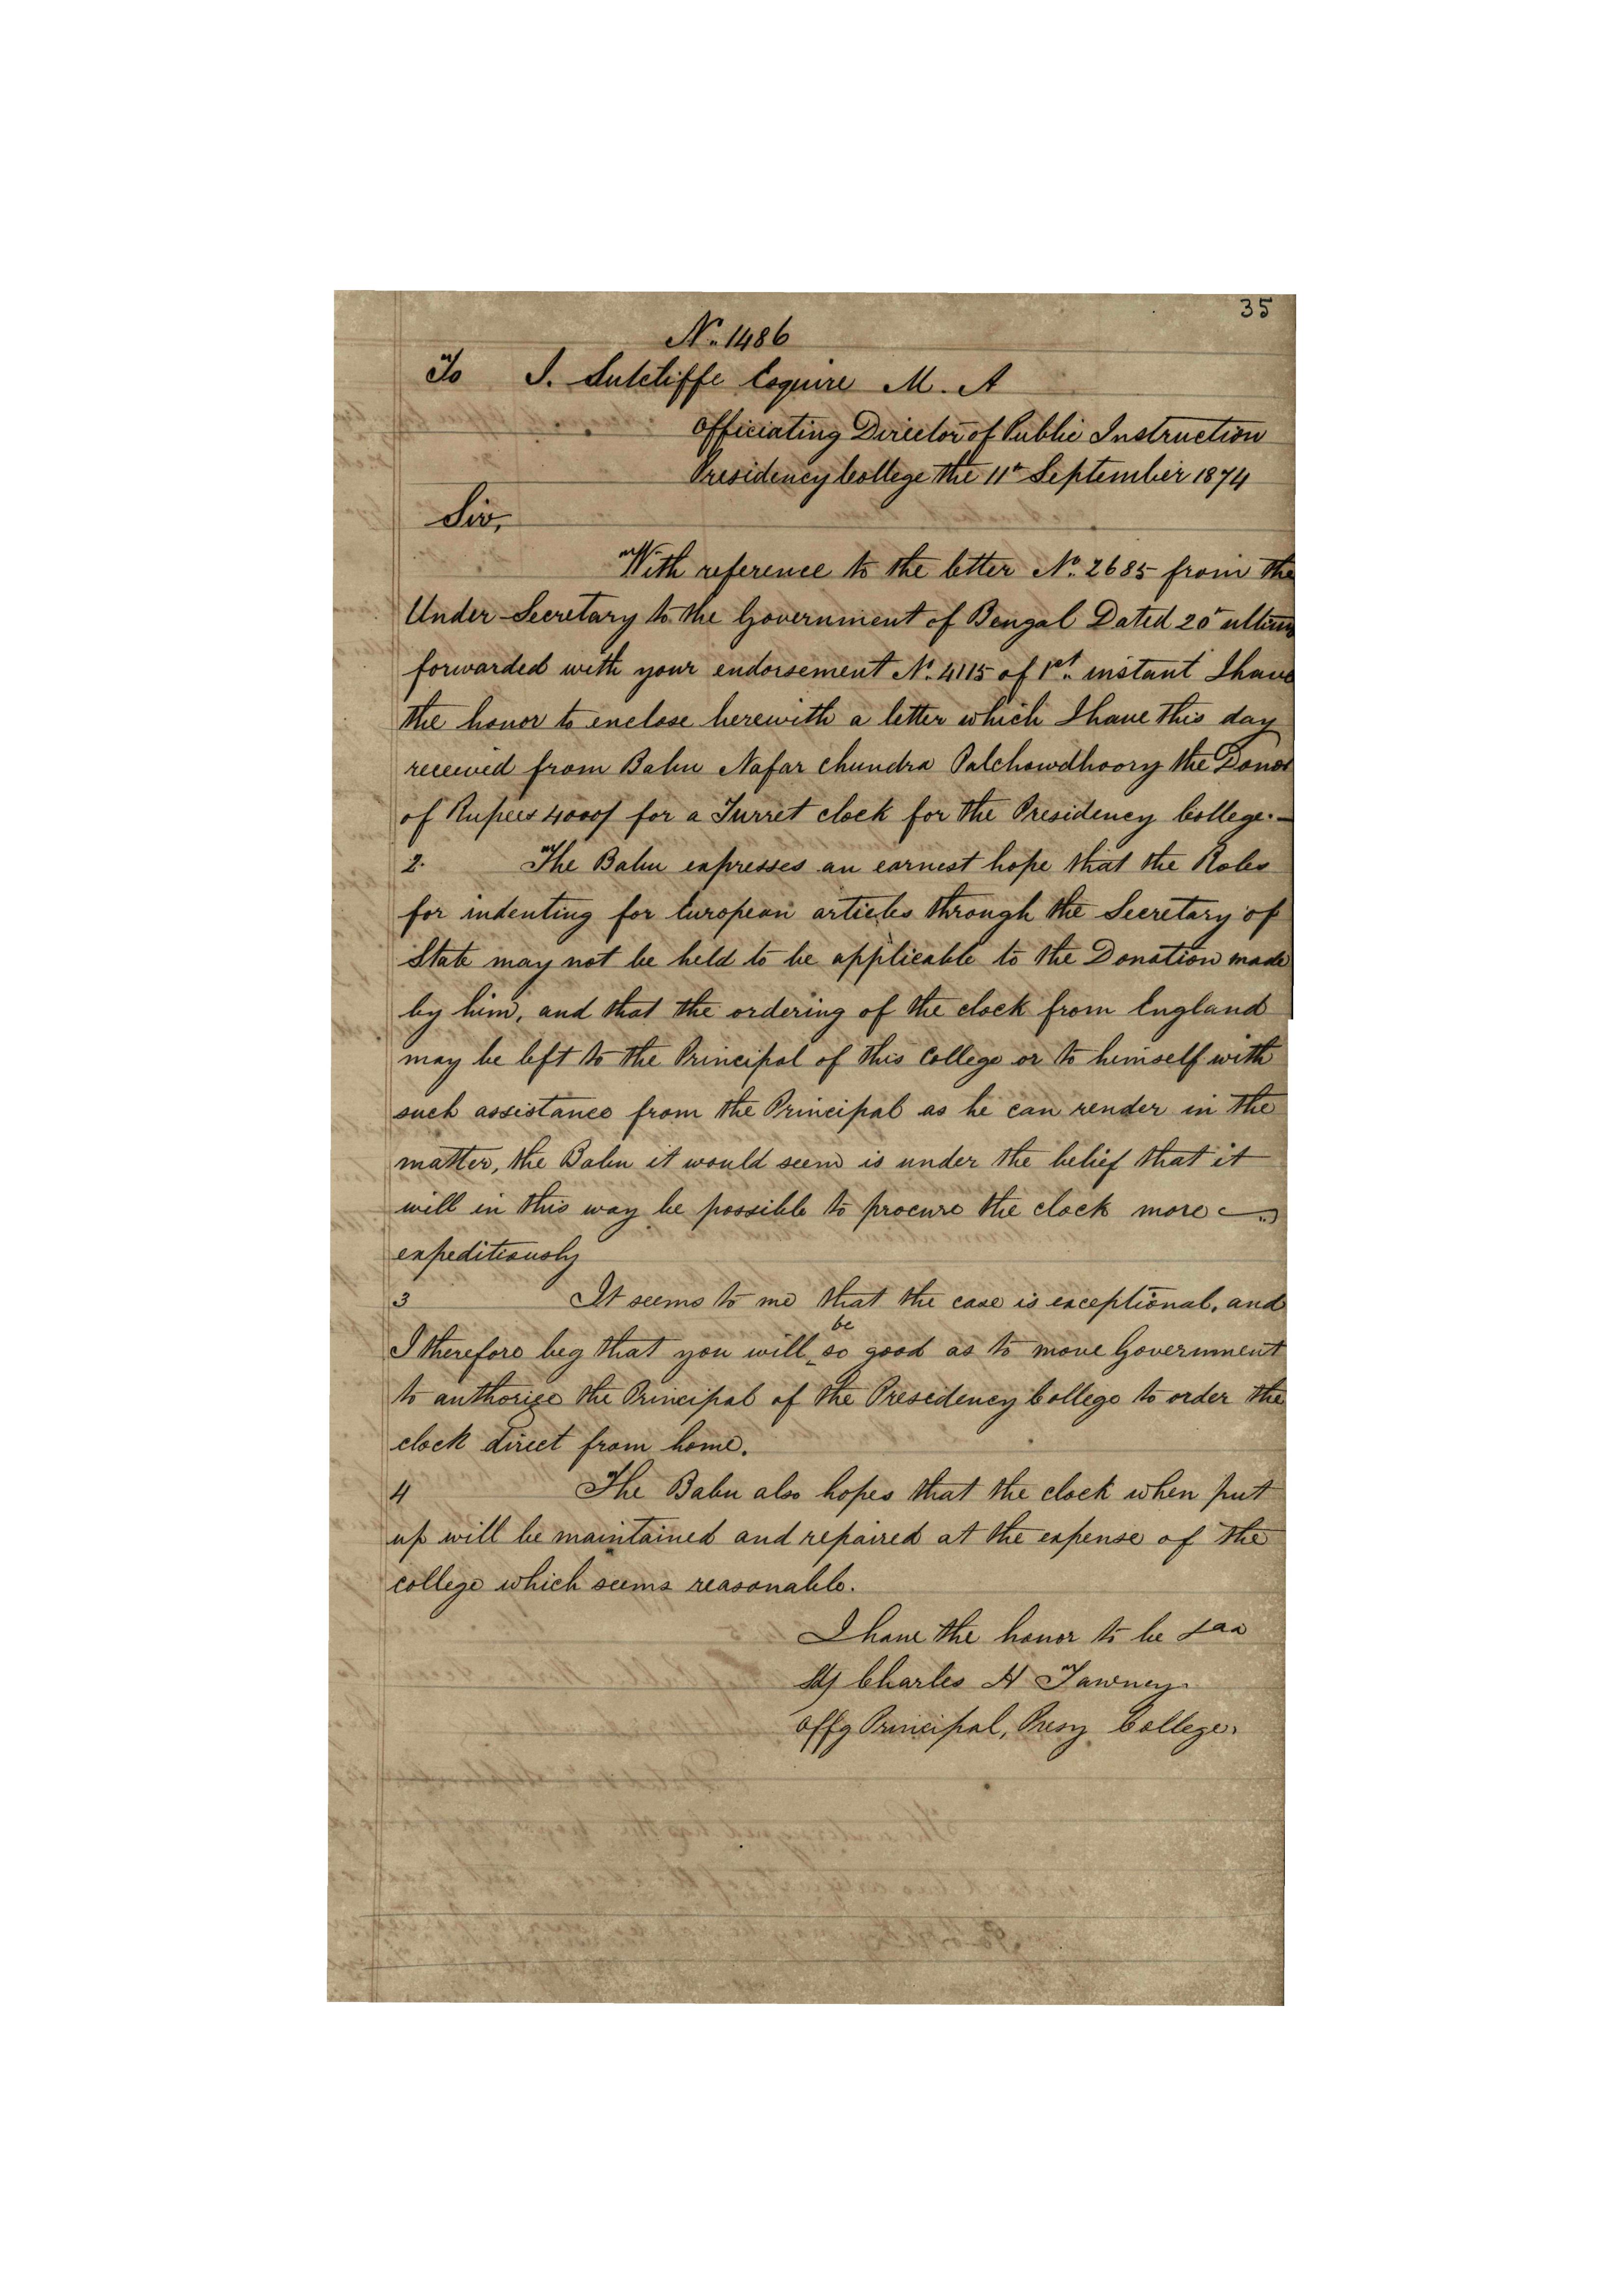 35
No. 1486
To J. Sutcliffe Esquire M. A
Officiating Director of Public Instruction
Presidency College the 11th September 1874
Sir,
With reference to the letter No. 2685 from the
Under-Secretary to the Government of Bengal Dated 20th ultimo
forwarded with your endorsement No. 4115 of 1st. instant I have
the honor to enclose herewith a letter which I have this day
received from Babu Nafar Chundra Palchowdhoory the Donor
of Rupees 4000/ for a Turret clock for the Presidency College.-
2. The Babu expresses an earnest hope that the Roles
for indenting for European articles through the Secretary of
State may not be held to be applicable to the Donation made
by him, and that the ordering of the clock from England
may be left to the Principal of this College or to himself with
such assistance from the Principal as he can render in the
matter, the Babu it would seem is under the belief that it
will in this way be possible to procure the clock more
expeditiously
3 It seems to me that the case is exceptional, and
I therefore beg that you will be so good as to move Government
to authorize the Principal of the Presedency College to order the
clock direct from home.
4 The Babu also hopes that the clock when put
up will be maintained and repaired at the expense of the
college which seems reasonable.
I have the honor to be &aa
Sd/ Charles H Tawney.
Offg Principal, Presy College.